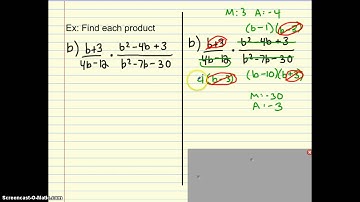 Ex: Find each product
b) b+3/4b-12 · b²-4b+3/b²-7b-30
M:3 A:-4
(b-1)(b-3)
b) b+3/4b-12 · b²-4b+3/b²-7b-30
4(b-3) (b-10)(b+3)
M:-30
A:-3
Screencast-O-Matic.com